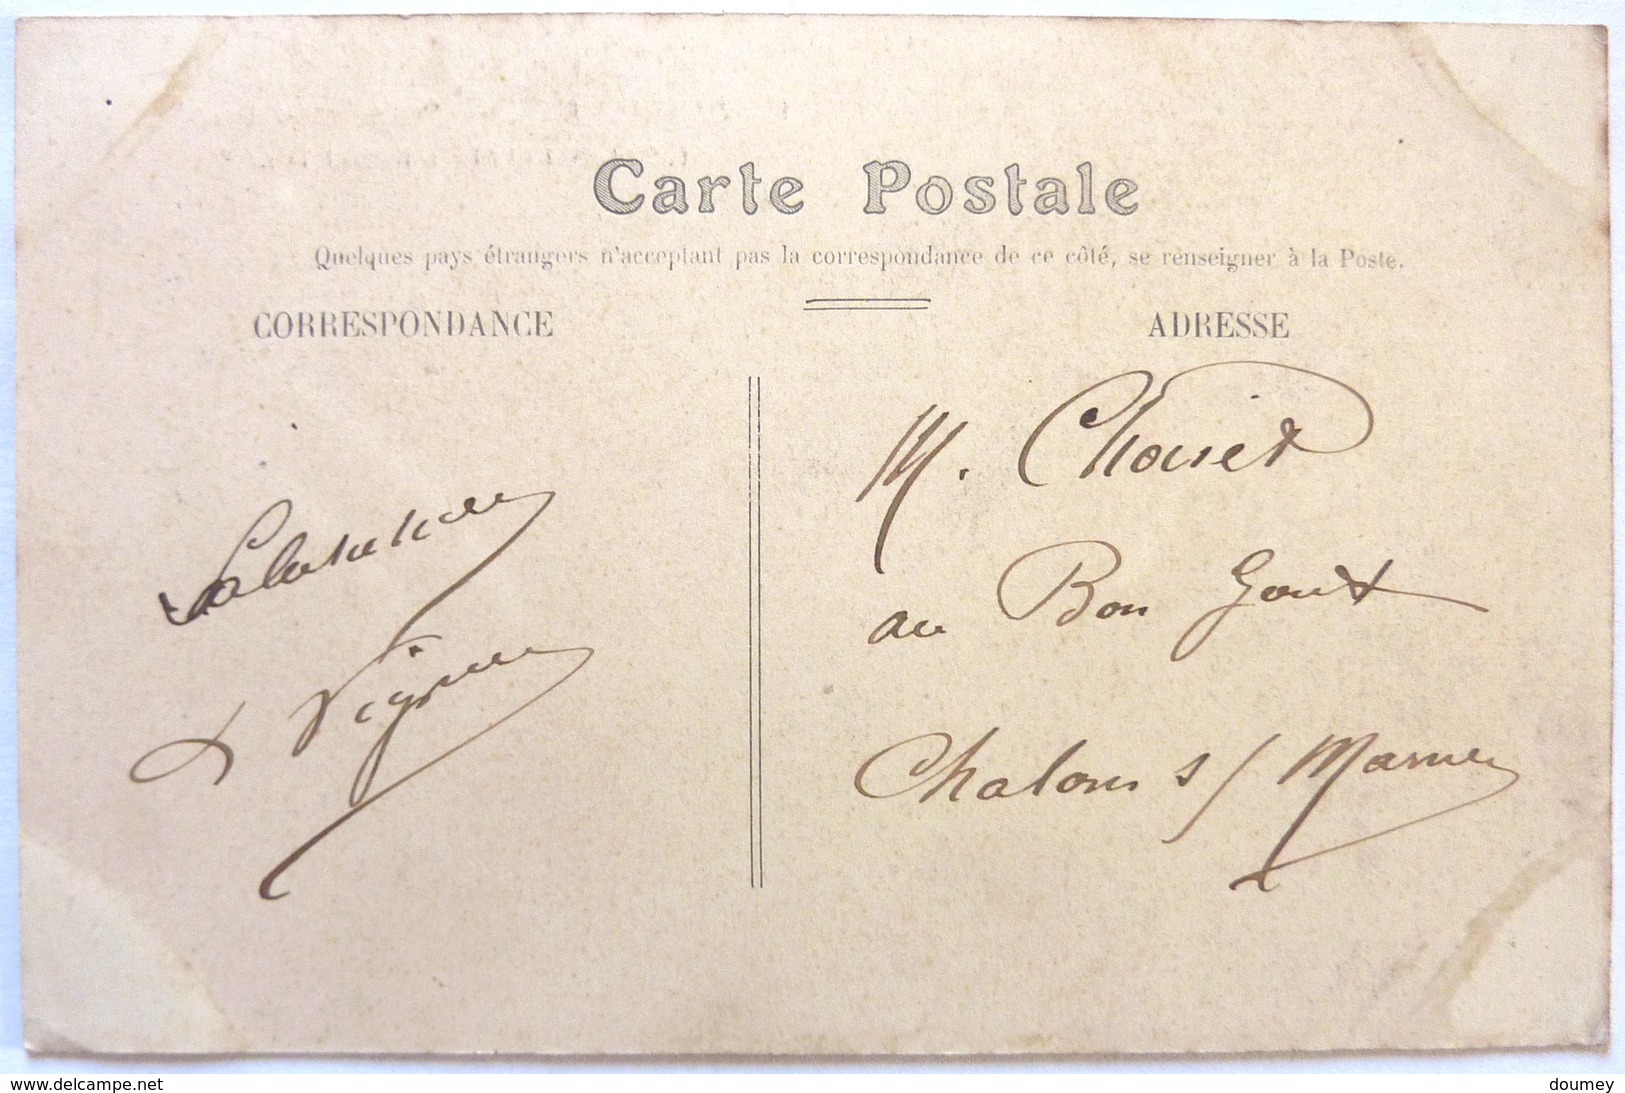 Carte Postale
Quelques pays étrangers n'acceptant pas la correspondance de ce côté, se renseigner à la Poste.
CORRESPONDANCE
ADRESSE
M. Chouet
au Bon Gout
Chalons s/ Marne
www.delcampe.net
doumey